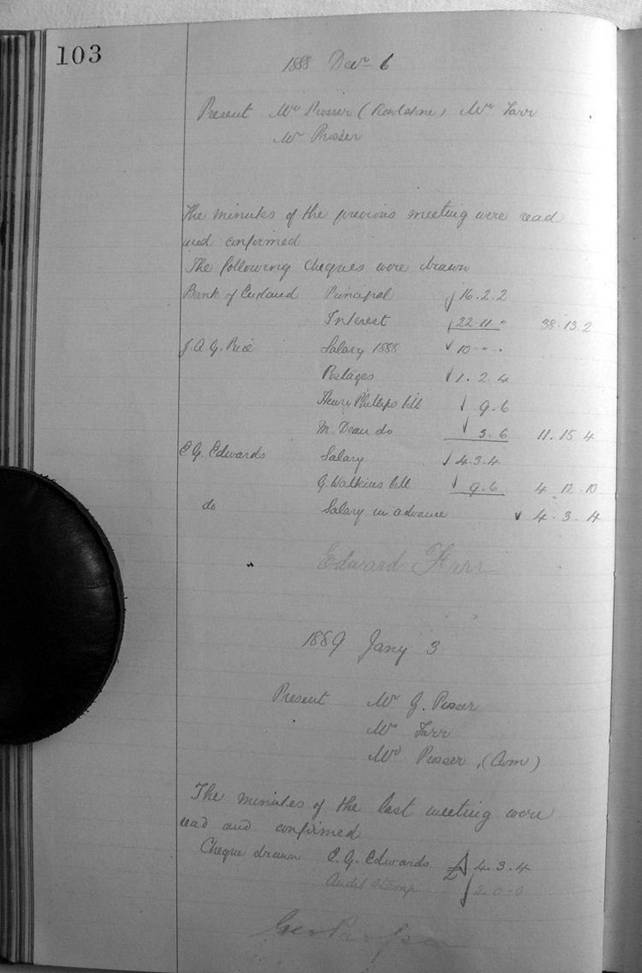 103
1888 Decr 6
Present Mr Prosser (Rowlstone) Mr Farr
Mr Prosser
The minutes of the previous meeting were read
and confirmed
The following cheques were drawn
Bank of England Principal 16.2.2
Interest 22.11." 38.13.2
J. A. G. Price Salary 1888 10.-.-
Postages 1.2.4
Henry Phillips bill 9.6
M. Dean do 3.6 11.15.4
C. G. Edwards Salary 4.3.4
G. Watkins bill 9.6 4.12.10
do Salary in advance 4.3.4
Edward Farr
1889 Jany 3
Present Mr G. Prosser
Mr Farr
Mr Prosser, (Com)
The minutes of the last meeting were
read and confirmed
Cheque drawn C. G. Edwards £ 4.3.4
Audit Stamp 2.0.0
Geo Prosser